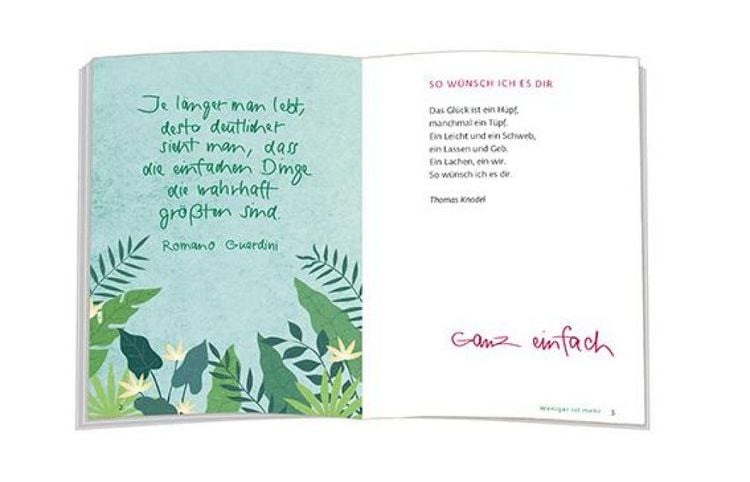 Je länger man lebt,
desto deutlicher
sieht man, dass
die einfachen Dinge
die wahrhaft
größten sind.
Romano Guardini
2
SO WÜNSCH ICH ES DIR
Das Glück ist ein Hüpf,
manchmal ein Tüpf.
Ein Leicht und ein Schweb,
ein Lassen und Geb.
Ein Lachen, ein wir.
So wünsch ich es dir.
Thomas Knodel
Ganz einfach
Weniger ist mehr 3